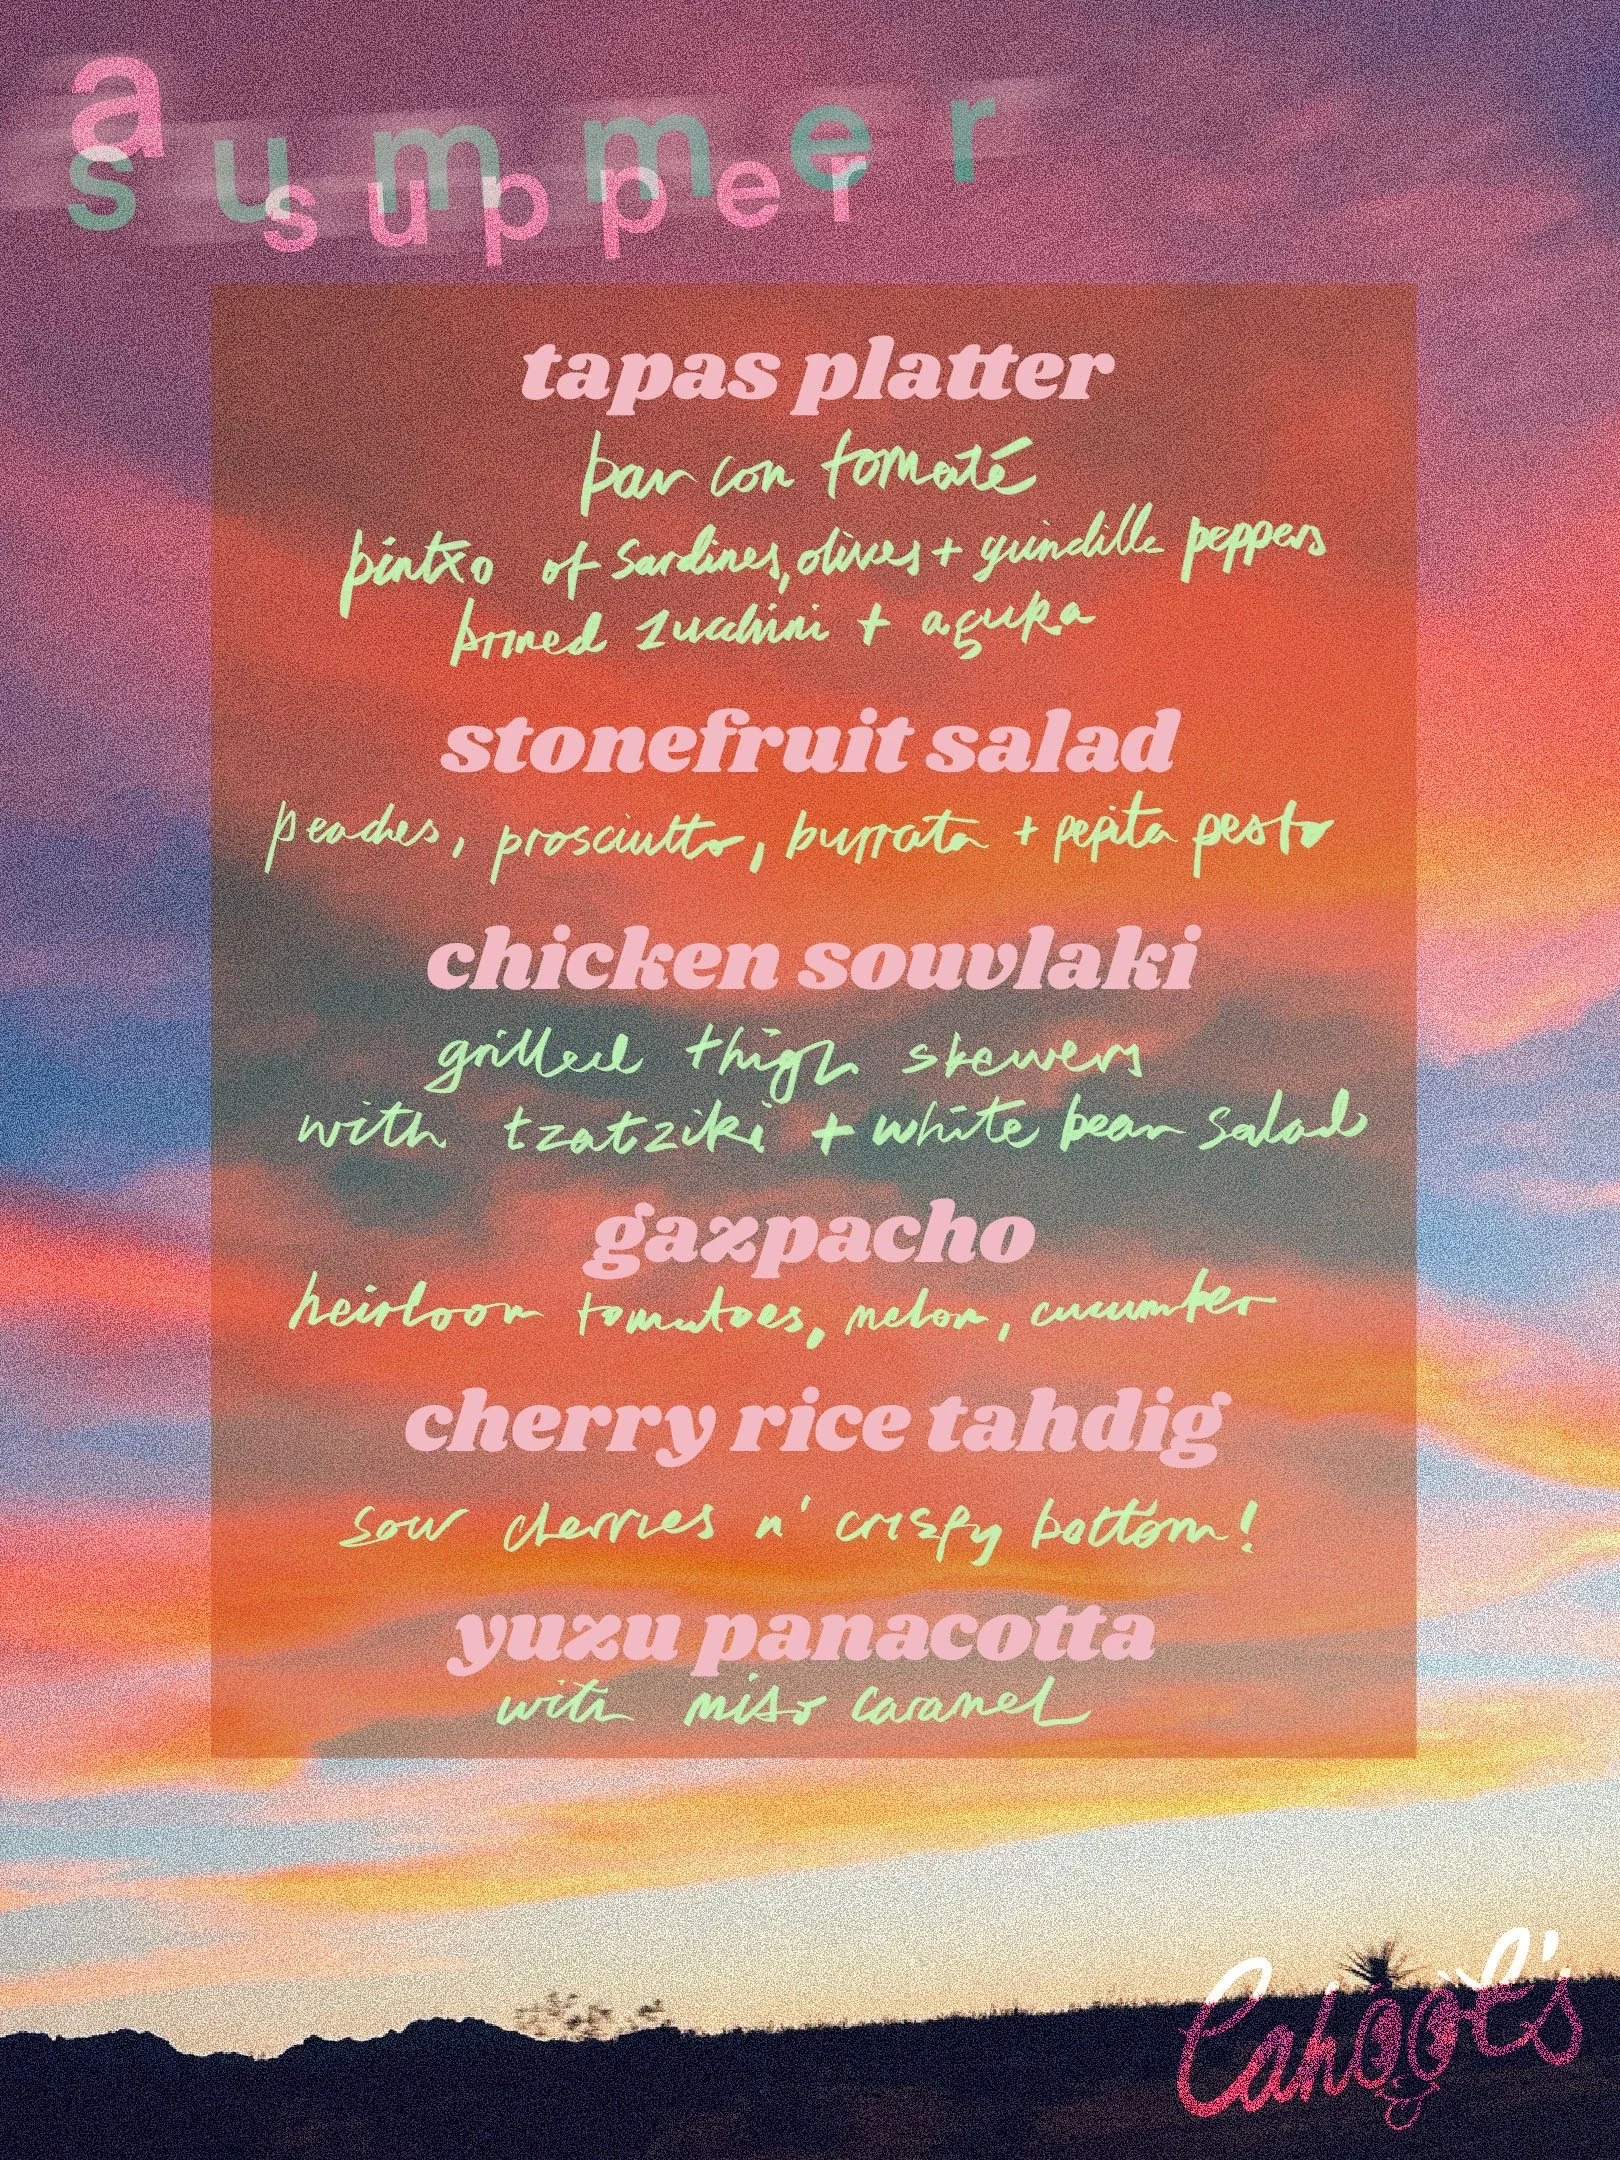 a
summer
supper
tapas platter
pan con tomaté
pintxo of sardines, olives + guindilla peppers
brined zucchini + aguka
stonefruit salad
peaches, prosciutto, burrata + pepita pesto
chicken souvlaki
grilled thigh skewers
with tzatziki + white bean salad
gazpacho
heirloom tomatoes, melon, cucumber
cherry rice tahdig
sour cherries n' crispy bottom!
yuzu panacotta
with miso caramel